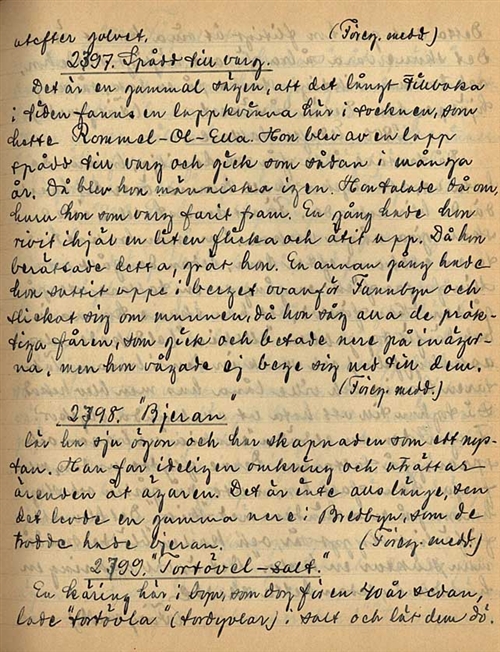 utefter golvet. (Föreg. medd.)
2797. Spådd till varg.
Det är en gammal sägen, att det långt tillbaka
i tiden fanns en lappkvinna här i socknen, som
hette Rommel-Ol-Ella. Hon blev av en lapp
spådd till varg och gick som sådan i många
år. Då blev hon människa igen. Hon talade då om,
huru hon som varg farit fram. En gång hade hon
rivit ihjäl en liten flicka och ätit upp. Då hon
berättade detta, grät hon. En annan gång hade
hon suttit uppe i berget ovanför Fannbyn och
slickat sig om munnen, då hon såg alla de präk-
tiga fåren, som gick och betade nere på inägor-
na, men hon vågade ej bege sig ned till dem.
(Föreg. medd.)
2798. "Bjeran"
lär ha sju ögon och har skapnaden som ett nys-
tan. Han far ideligen omkring och uträttar
ärenden åt ägaren. Det är inte alls länge, sen
det levde en gumma nere i Bredbyn, som de
trodde hade bjeran. (Föreg. medd.)
2799. "Tortövel-salt."
En käring här i byn, som dog för en 40 år sedan,
lade "tortövla" (tordyvlar) i salt och lät dem dö.